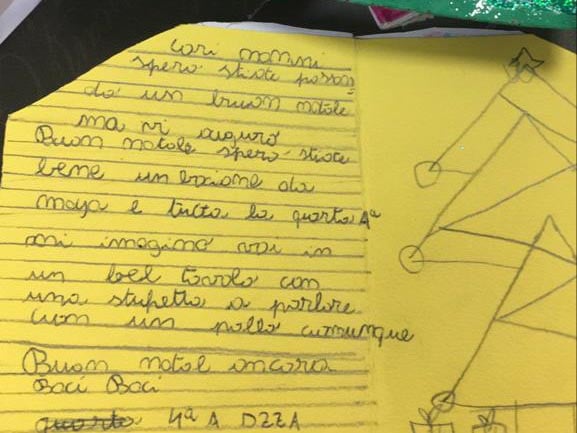 cari nonni
spero stiate passan
do un buon natale
ma vi auguro
Buon natale spero stiate
bene un bacione da
maya e tutta la quarta Aª
mi imagino voi in
un bel tavolo con
una stufetta a parlare
con un pollo cumunque
Buon natal ancora
Baci Baci
quarta 4ª A DZZA